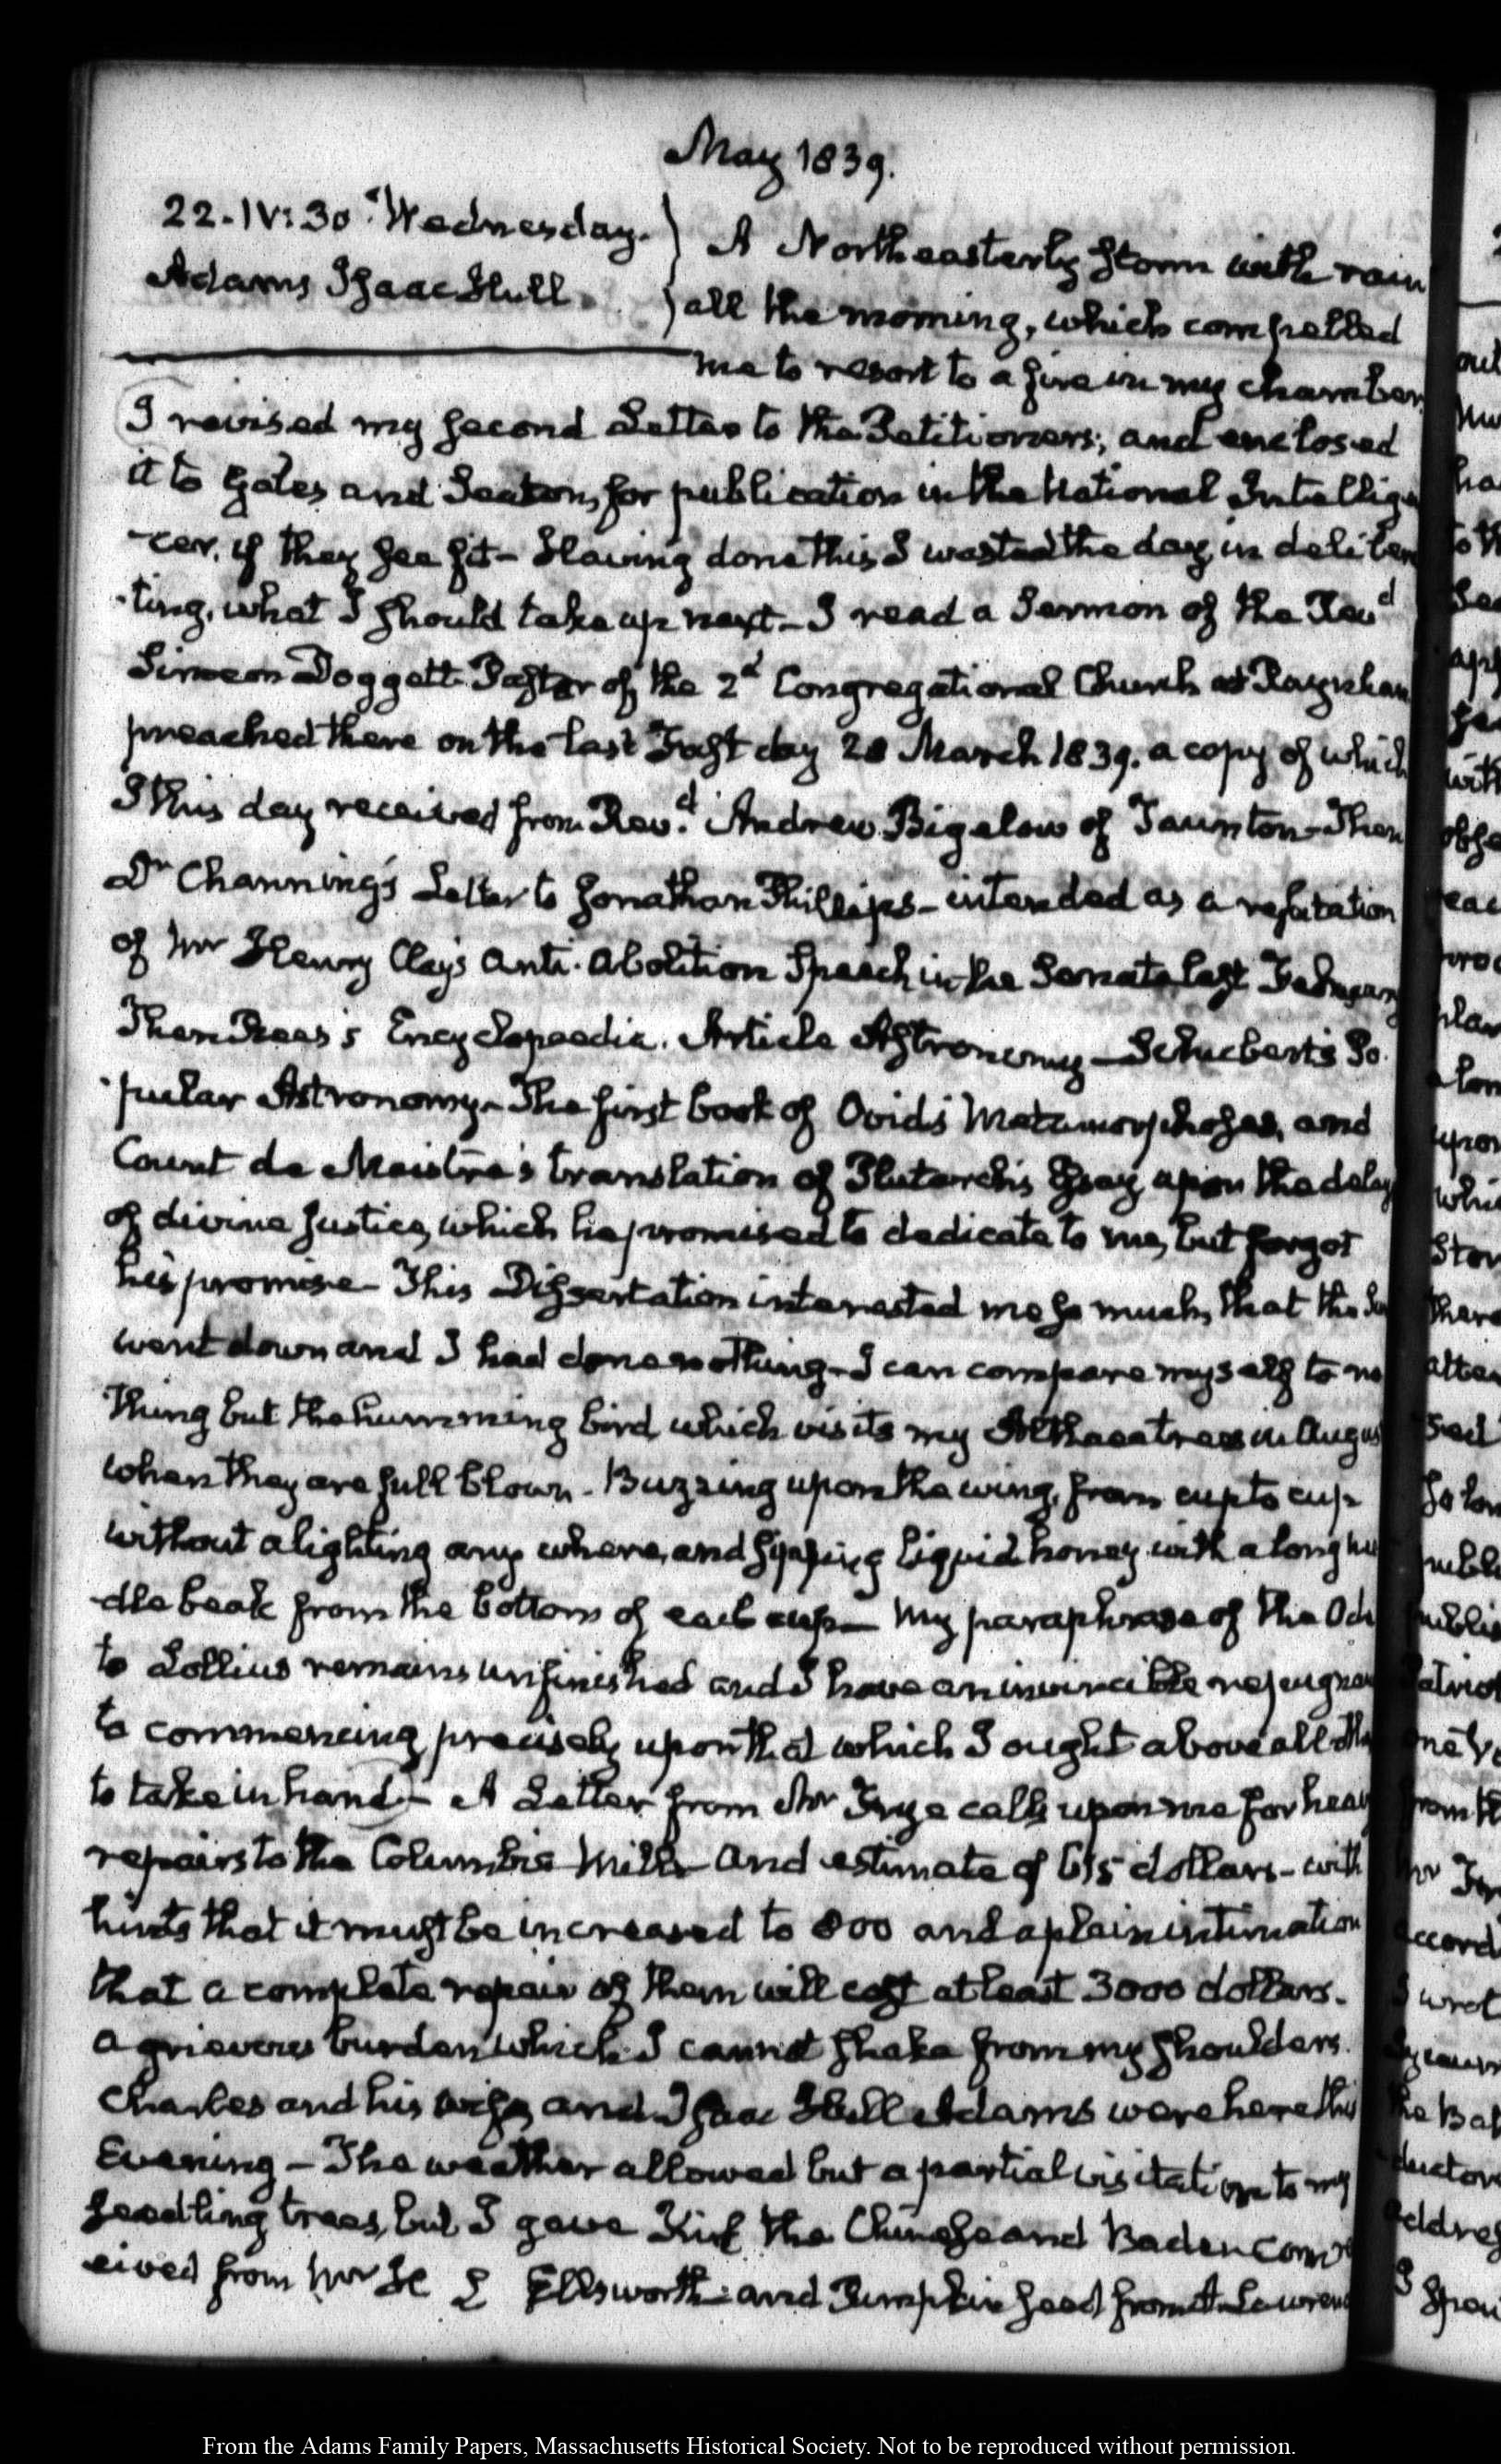 May 1839.
22. IV: 30. Wednesday.
Adams Isaac Hull.
A North easterly storm with rain
all the morning, which compelled
me to resort to a fire in my chamber
I revised my second Letter to the Petitioners; and enclosed
it to Gales and Seaton, for publication in the National Intellig
-cer, if they see fit— Having done this I wasted the day in delibera
-ting, what I should take up next— I read a Sermon of the Revd
Simeon Doggett Pastor of the 2d Congregational Church at Raynham
preached there on the last Fast day 28 March 1839. a copy of which
I this day received from Revd. Andrew Bigelow of Taunton— Then
Dr Channing's Letter to Jonathan Phillips— intended as a refutation
of Mr Henry Clay's Anti-Abolition Speech in the Senate last February
Then Rees's Encyclopaedia. Article Astronomy— Schubert's Po-
-pular Astronomy— The first book of Ovid's Metamorphoses, and
Count de Maistre's translation of Plutarch's Essay upon the delay
of divine Justice, which he promised to dedicate to me, but forgot
his promise— This Dissertation interested me so much, that the Sun
went down and I had done nothing— I can compare myself to no
thing but the humming bird which visits my Althaea trees in August
when they are full blown. Buzzing upon the wing, from cup to cup
without alighting any where, and sipping liquid honey with a long nee
-dle beak from the bottom of each cup— My paraphrase of the Ode
to Lollius remains unfinished and I have an invincible repugnan
to commencing precisely upon that which I ought above all oth
to take in hand— A Letter from Mr Frye calls upon me for heavy
repairs to the Columbia Mills and estimate of 615 dollars— with
hints that it must be increased to 800 and a plain intimation
that a complete repair of them will cost at least 3000 dollars.
a grievous burden which I cannot shake from my shoulders.
Charles and his wife, and Isaac Hull Adams were here this
Evening— The weather allowed but a partial visitation to my
seedling trees, but I gave Kirk the Chinese and Baden corn
eived from Mr H L Ellsworth and Pumpkin seed from A. Lawrence
From the Adams Family Papers, Massachusetts Historical Society. Not to be reproduced without permission.